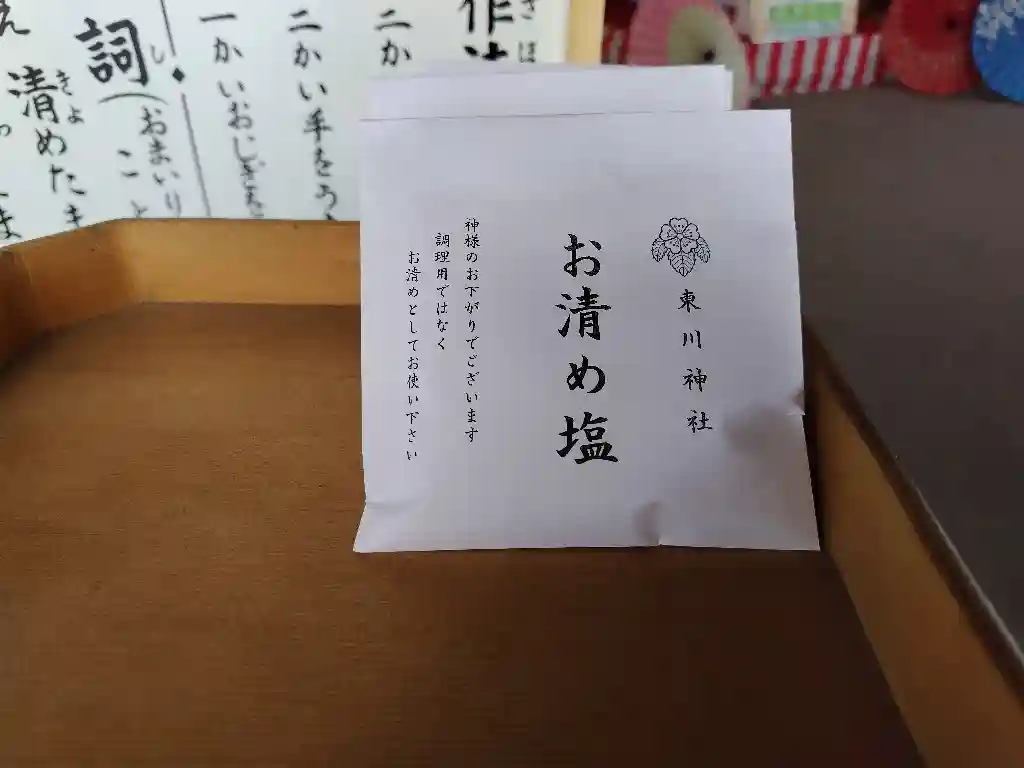 東川神社
お清め塩
神様のお下がりでございます
調理用ではなく
お清めとしてお使い下さい
さほ
作法
二か
二かい手をう
一かいおじぎ
し
詞（おまいり
こと
きよ
清めたま
え